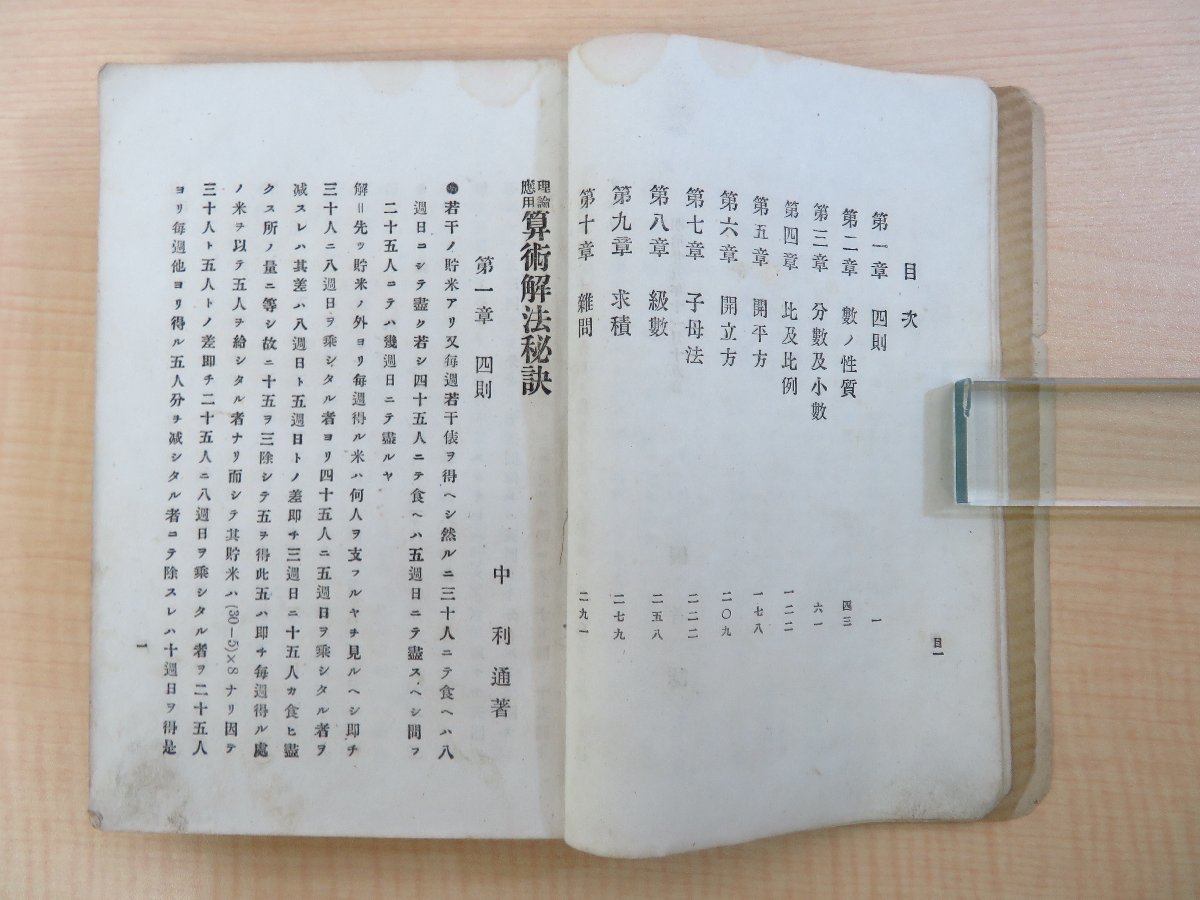 目次
第一章　四則　一
第二章　數ノ性質　四三
第三章　分數及小數　六一
第四章　比及比例　一二二
第五章　開平方　一七八
第六章　開立方　二〇九
第七章　子母法　二二二
第八章　級數　二五八
第九章　求積　二七九
第十章　雜問　二九一
目一
理論應用 算術解法秘訣
中利通著
第一章　四則
若干ノ貯米アリ又每週若干俵ヲ得ヘシ然ルニ三十人ニテ食ヘハ八
週日ニシテ盡ク若シ四十五人ニテ食ヘハ五週日ニテ盡スヘシ問フ
二十五人ニテハ幾週日ニテ盡ルヤ
解＝先ッ貯米ノ外ヨリ每週得ル米ハ何人ヲ支フルヤヲ見ルヘシ即チ
三十人ニ八週日ヲ乘シタル者ヨリ四十五人ニ五週日ヲ乘シタル者ヲ
減スレハ其差ハ八週日ト五週日トノ差即チ三週日ニ十五人カ食ヒ盡
クス所ノ量ニ等シ故ニ十五ヲ三除シテ五ヲ得此五ハ即チ每週得ル處
ノ米ヲ以テ五人ヲ給シタル者ナリ而シテ其貯米ハ(30−5)×8ナリ因テ
三十人ト五人トノ差即チ二十五人ニ八週日ヲ乘シタル者ヲ二十五人
ヨリ每週他ヨリ得ル五人分ヲ減シタル者ニテ除スレハ十週日ヲ得是
一